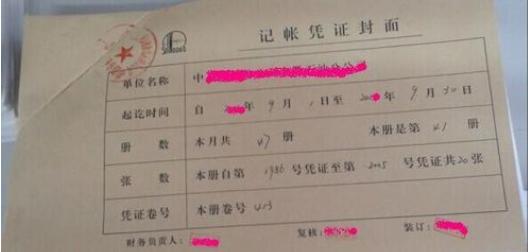 记帐凭证封面
单位名称 中
起讫时间 自 年 9 月 1 日至 年 9 月 30 日
册 数 本月共 47 册 本册是第 41 册
张 数 本册自第 1986 号凭证至第 2005 号凭证共 20 张
凭证卷号 本册卷号 403
财务负责人: 复核: 装订: